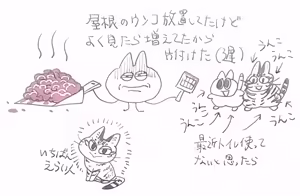 屋根のウンコ放置してたけど
よく見たら増えてたから
片付けた(遅)
うんこ
うんこ
うんこ
うんこ
うんこ
最近トイレ使って
ないと思ったら
いちばん
えらい人